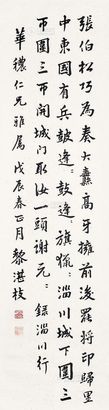 張伯松巧為奏大纛高牙擁前後罷將印歸山
中東國有兵鼓逢〻鼓逢〻旗獵〻淄川城下圍三
帀圍三帀開城門取汝一頭謝元〻 錄淄川行
華穠仁兄雅屬 戊辰春正月黎湛枝